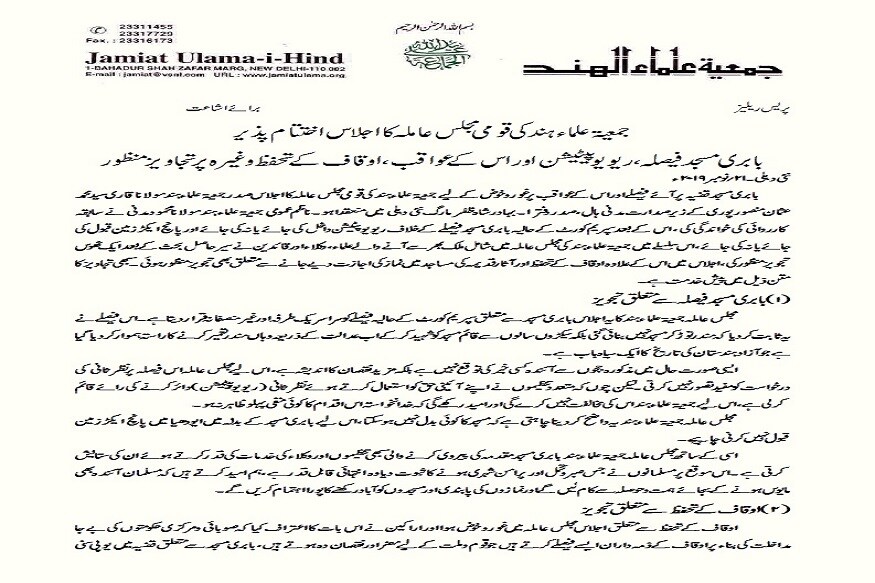 بسم اللہ الرحمٰن الرحیم
23311455
23317729
Fax. : 23316173
Jamiat Ulama-i-Hind
1-BAHADUR SHAH ZAFAR MARG, NEW DELHI-110 002
E-mail : jamiat@vsnl.com URL : www.jamiatulama.org
جمعیة علماء الهند
پریس ریلیز
برائے اشاعت
جمعیۃ علماء ہند کی قومی مجلس عاملہ کا اجلاس اختتام پذیر
بابری مسجد فیصلہ، ریویو پیٹیشن اور اس کے عواقب، اوقاف کے تحفظ وغیرہ پر تجاویز منظور
نئی دہلی۔ ۲۱/نومبر ۲۰۱۹ء
بابری مسجد قضیہ پر آئے فیصلے اور اس کے عواقب پر غور و خوض کے لیے جمعیۃ علماء ہند کی قومی مجلس عاملہ کا اجلاس صدر جمعیۃ علماء ہند مولانا قاری سید محمد
عثمان منصورپوری کے زیر صدارت مدنی ہال، صدر دفتر ۱۔ بہادر شاہ ظفر مارگ نئی دہلی میں منعقد ہوا۔ ناظم عمومی جمعیۃ علماء ہند مولانا محمود مدنی نے سابقہ
کارروائی کی خواندگی کی، اس کے بعد سپریم کورٹ کے حالیہ بابری مسجد فیصلے کے خلاف ریویو پیٹیشن داخل کی جائے یا نہ کی جائے اور پانچ ایکڑ زمین قبول کی
جائے یا نہ کی جائے، اس سلسلے میں جمعیۃ علماء ہند کی مجلس عاملہ میں شامل ملک بھر سے آنے والے علماء، وکلاء اور قائدین نے سیر حاصل بحث کے بعد ایک ٹھوس
تجویز منظور کی، اجلاس میں اس کے علاوہ اوقاف کے تحفظ اور آثار قدیمہ کی مساجد میں نماز کی اجازت دیے جانے سے متعلق بھی تجویز منظور ہوئی۔ سبھی تجاویز کا
متن ذیل میں پیش خدمت ہے۔
(۱) بابری مسجد فیصلہ سے متعلق تجویز
مجلس عاملہ جمعیۃ علماء ہند کا یہ اجلاس بابری مسجد سے متعلق سپریم کورٹ کے حالیہ فیصلے کو سراسر یک طرفہ اور غیر منصفانہ قرار دیتا ہے۔ اس فیصلے نے
یہ ثابت کر دیا کہ مندر توڑ کر مسجد نہیں بنائی گئی بلکہ سیکڑوں سالوں سے قائم مسجد کو شہید کر کے اب عدالت کے ذریعہ وہاں مندر تعمیر کرنے کا راستہ ہموار کر دیا گیا
ہے جو آزاد ہندستان کی تاریخ کا ایک سیاہ باب ہے۔
ایسی صورت حال میں مذکورہ بنچوں سے آئندہ کسی خیر کی توقع نہیں ہے بلکہ مزید نقصان کا اندیشہ ہے، اس لیے مجلس عاملہ اس فیصلہ پر نظر ثانی کی
درخواست کو مفید تصور نہیں کرتی لیکن چوں کہ متعدد تنظیموں نے اپنے آئینی حق کو استعمال کرتے ہوئے نظر ثانی (ریویو پیٹیشن) دائر کرنے کی رائے قائم
کر لی ہے، اس لیے جمعیۃ علماء ہند اس کی مخالفت نہیں کرے گی اور امید رکھے گی کہ خدانخواستہ اس اقدام کا کوئی منفی پہلو ظاہر نہ ہو۔
مجلس عاملہ جمعیۃ علماء ہند یہ واضح کر دینا چاہتی ہے کہ مسجد کا کوئی بدل نہیں ہو سکتا، اس لیے بابری مسجد کے بدلہ میں ایودھیا میں پانچ ایکڑ زمین
قبول نہیں کرنی چاہیے۔
اسی کے ساتھ مجلس عاملہ جمعیۃ علماء ہند بابری مسجد مقدمہ کی پیروی کرنے والی سبھی تنظیموں اور وکلاء کی خدمات کی قدر کرتے ہوئے ان کی ستائش
کرتی ہے۔ اس موقع پر مسلمانوں نے جس صبر و تحمل اور پرامن شہری ہونے کا ثبوت دیا وہ انتہائی قابل قدر ہے، ہم امید کرتے ہیں کہ مسلمان آئندہ بھی
مایوس ہونے کے بجائے ہمت و حوصلہ سے کام لیں گے اور نمازوں کی پابندی اور مسجدوں کو آباد رکھنے کا پورا اہتمام کریں گے۔
(۲) اوقاف کے تحفظ سے متعلق تجویز
اوقاف کے تحفظ سے متعلق اجلاس مجلس عاملہ میں غور و خوض ہوا اور اراکین نے اس بات کا اعتراف کیا کہ صوبائی و مرکزی حکومتوں کی بے جا
مداخلت کی بناء پر اوقاف کے ذمہ داران ایسے فیصلے کرتے ہیں جو قوم و ملت کے لیے مضر اور نقصان دہ ہوتے ہیں، بابری مسجد سے متعلق قضیہ میں یوپی سنی